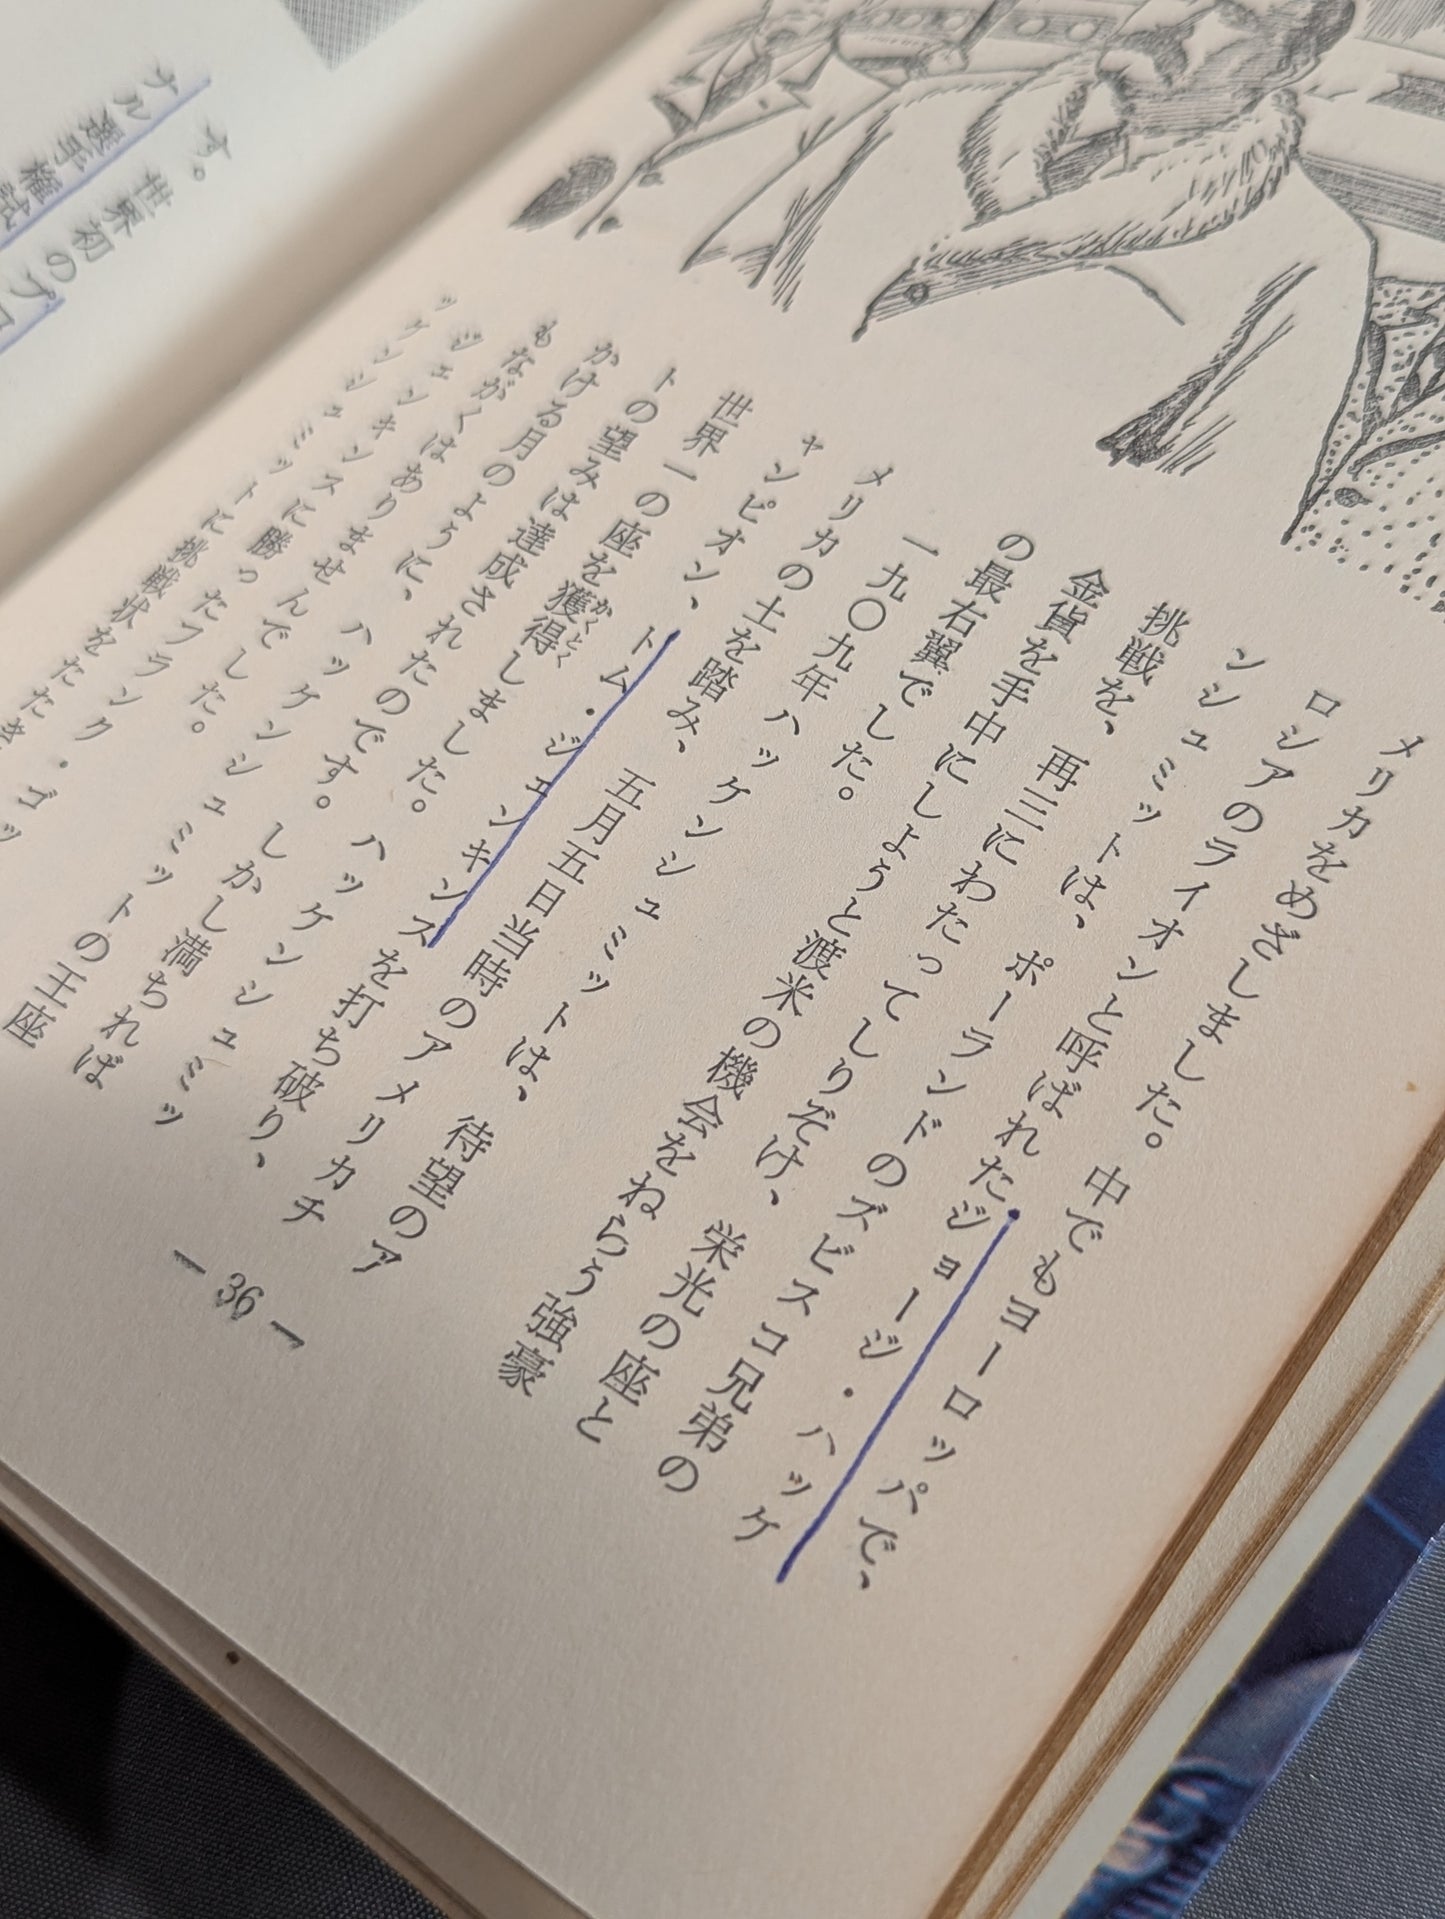 メリカをめざしました。中でもヨーロッパで、
ロシアのライオンと呼ばれたジョージ・ハッケ
ンシュミットは、ポーランドのズビスコ兄弟の
挑戦を、再三にわたってしりぞけ、栄光の座と
金貨を手中にしようと渡米の機会をねらう強豪
の最右翼でした。
一九〇九年ハッケンシュミットは、待望のア
メリカの土を踏み、五月五日当時のアメリカチ
ャンピオン、トム・ジェンキンスを打ち破り、
世界一の座を獲得しました。ハッケンシュミッ
かくとく
トの望みは達成されたのです。しかし満ちれば
かける月のように、ハッケンシュミットの王座
もながくはありませんでした。
ジェンキンスに勝ったフランク・ゴッ
ッケンシュミットに挑戦状をたたき
— 36 —
す。世界初のプロ
ナル選手権試